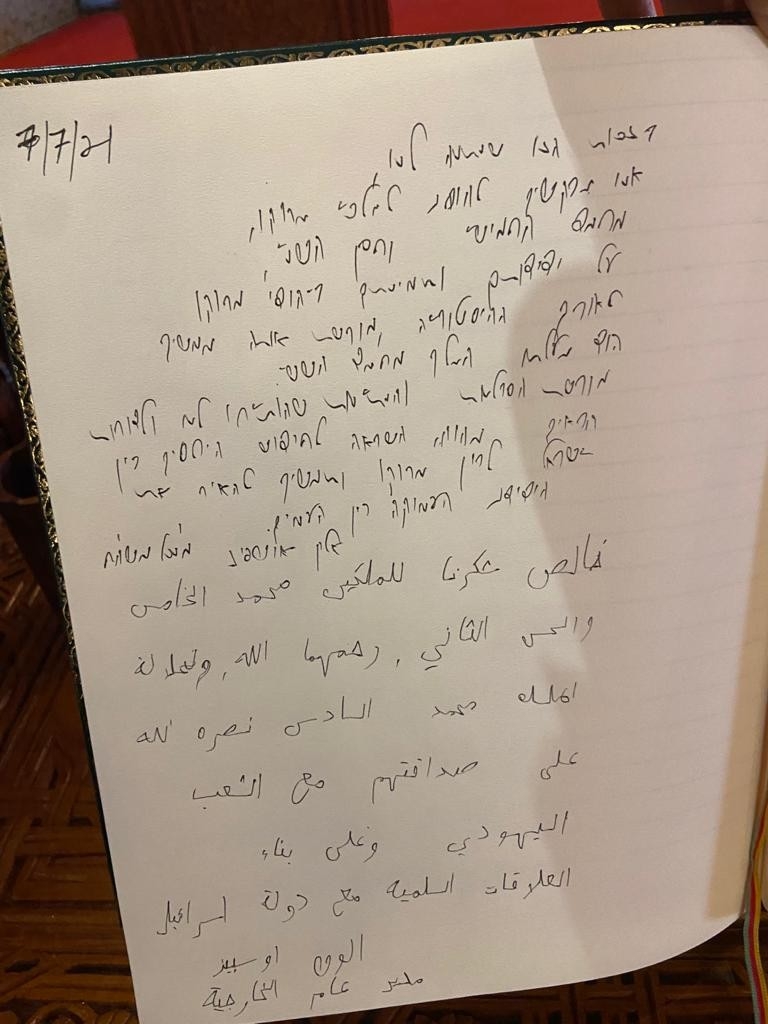 7/7/21
אנו מבקשים להודות למלכי מרוקו,
מחמד החמישי וחסן השני,
על ידידותם ותמיכתם ביהודי מרוקו
לאורך ההיסטוריה, מורשת אותה ממשיך
הוד מעלתו המלך מחמד השישי
מורשת הסובלנות
השראה לחיפוש הגישור בין
ישראל לבין מרוקו וימשיך להאיר את
הידידות העמוקה בין העמים.
אלון אושפיז מנכל משהח
خالص شكرنا للملكين محمد الخامس
والحسن الثاني، رحمهما الله، ولجلالة
الملك محمد السادس نصره الله
على صداقتهم مع الشعب
اليهودي وعلى بناء
العلاقات السلمية مع دولة اسرائيل
الون اوسبيز
مدير عام الخارجية